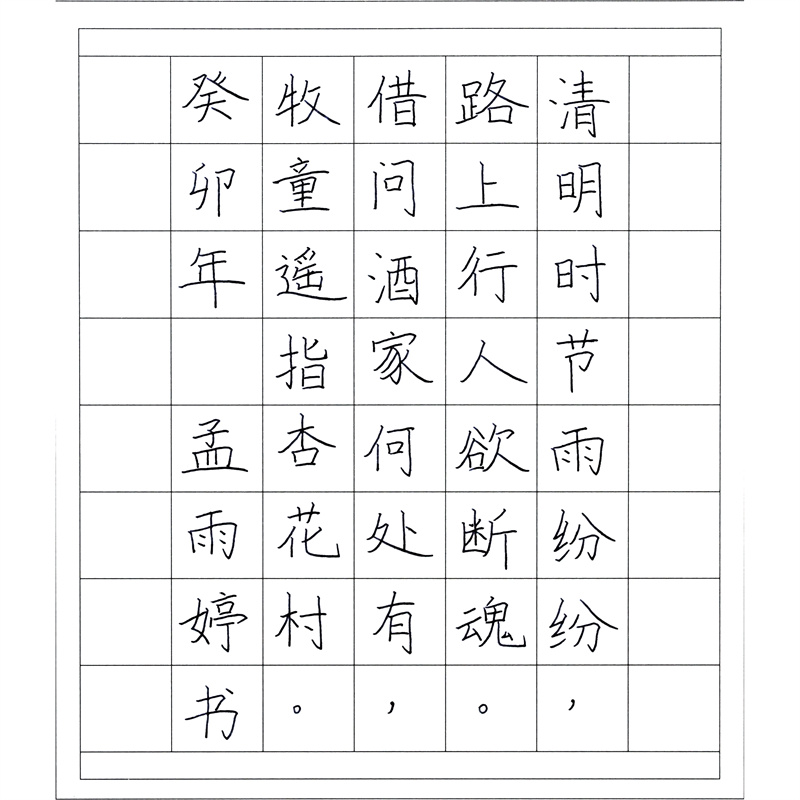 清明时节雨纷纷，
路上行人欲断魂。
借问酒家何处有，
牧童遥指杏花村。
癸卯年 孟雨婷书